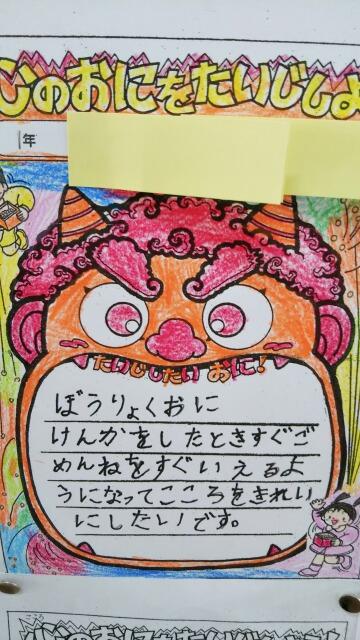 心のおにをたいじしよ
年
たいじしたい おに!
ぼうりょくおに
けんかをしたときすぐご
めんねをすぐいえるよ
うになってこころをきれい
にしたいです。
心のおにをたいじし